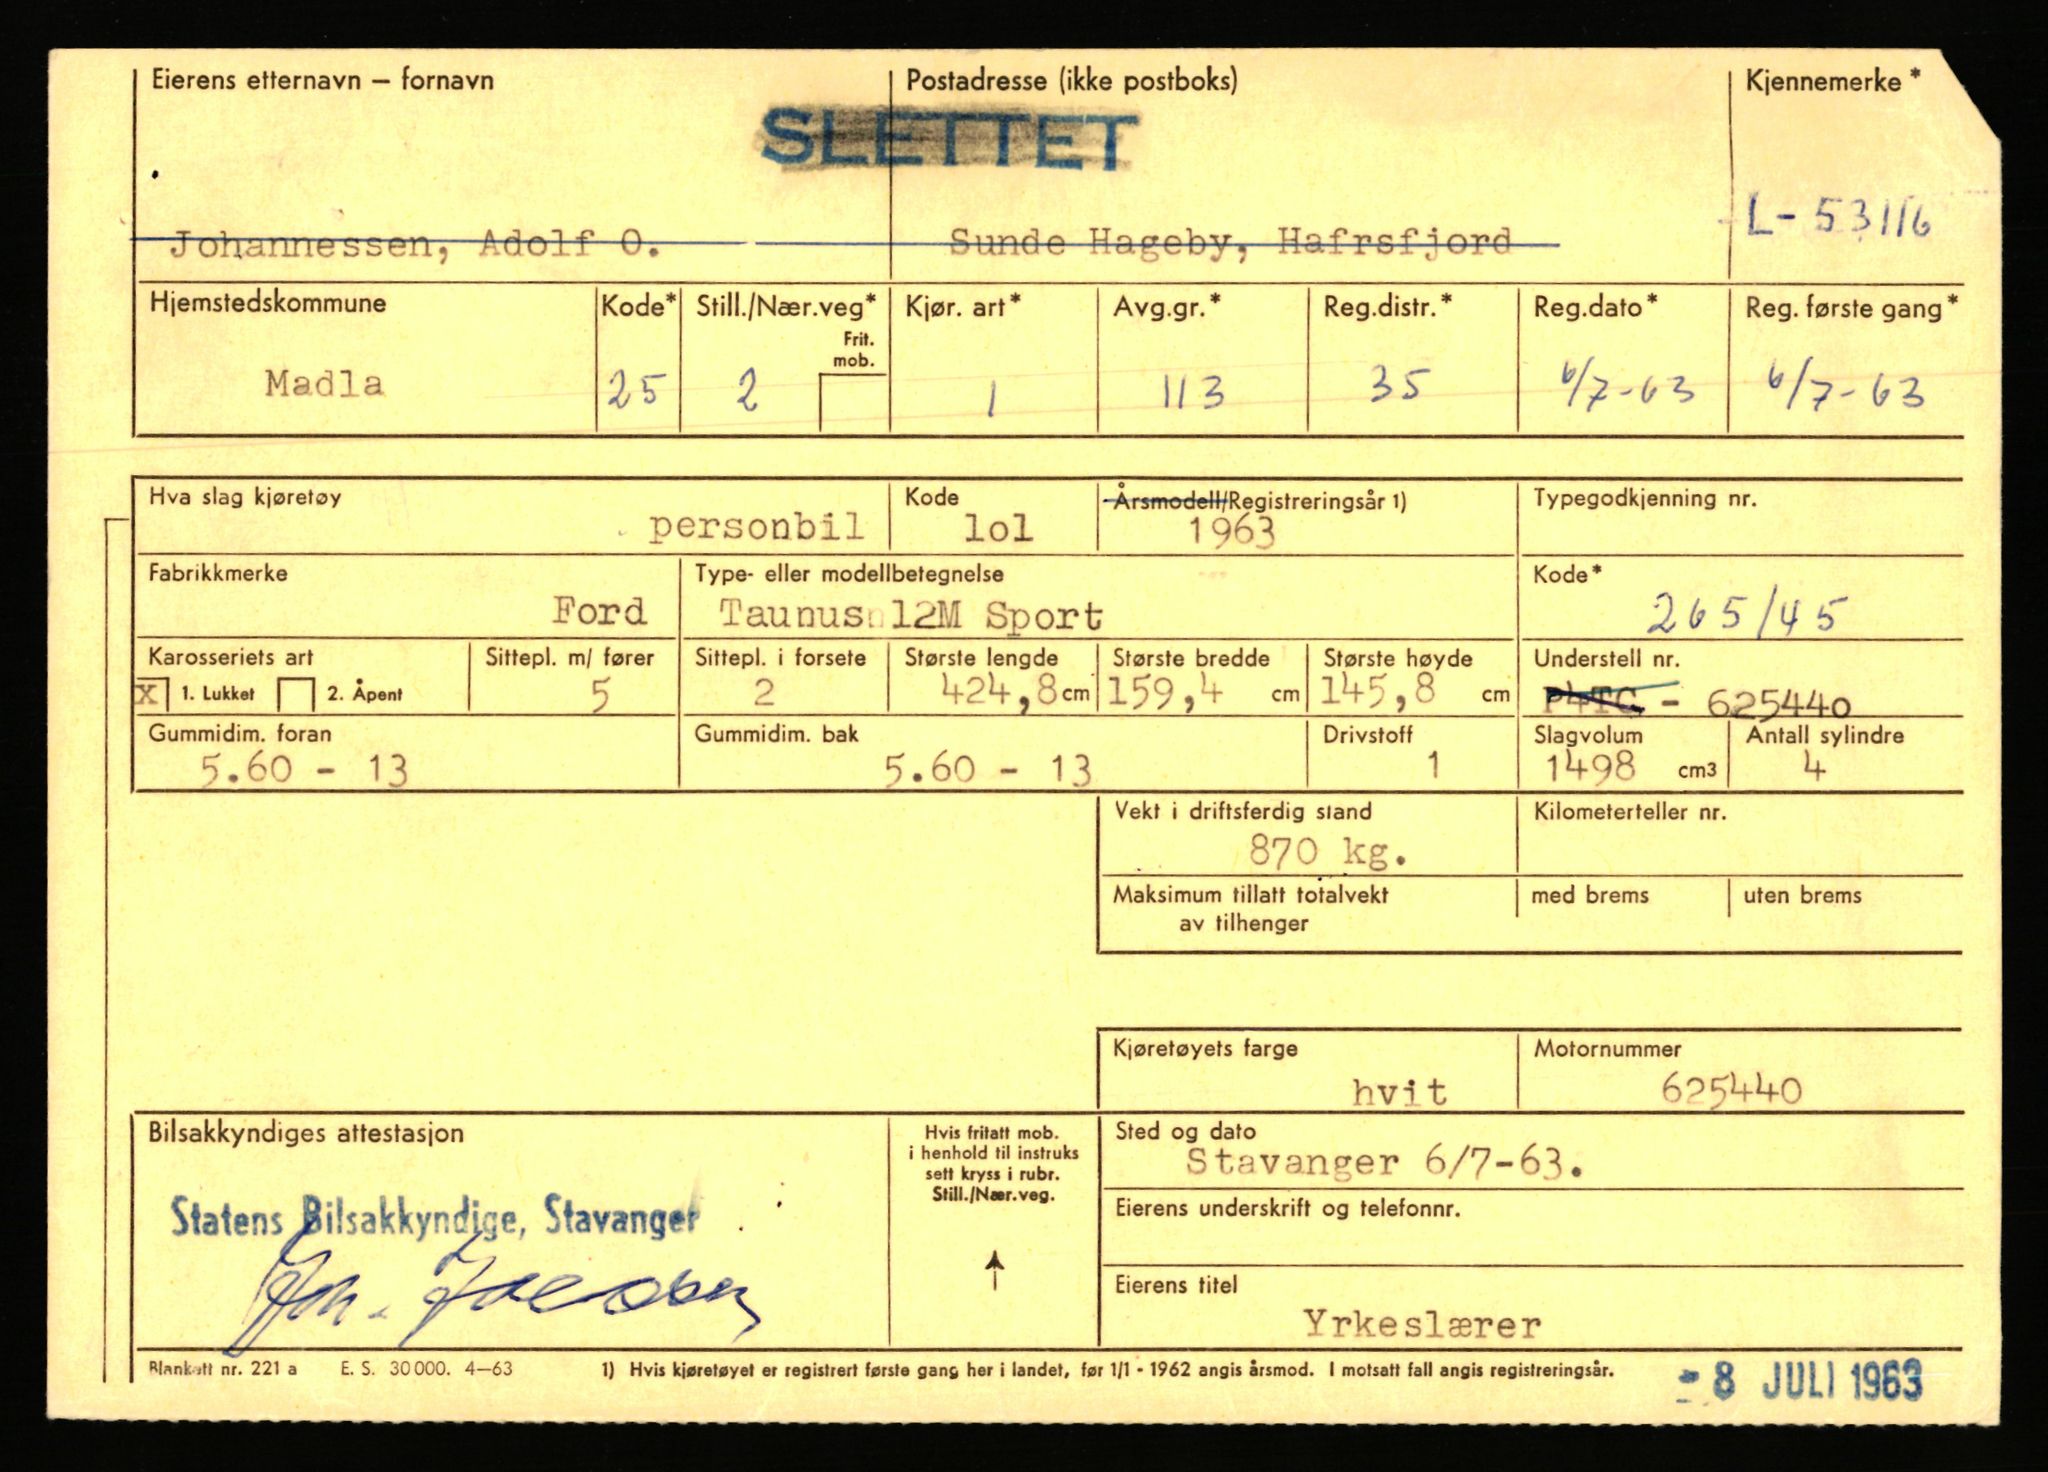 Eierens etternavn – fornavn
Postadresse (ikke postboks)
Kjennemerke*
SLETTET
Johannessen, Adolf O.
Sunde Hageby, Hafrsfjord
L- 53116
Hjemstedskommune
Kode*
Still./Nær.veg*
Frit. mob.
Kjør. art*
Avg.gr.*
Reg.distr.*
Reg.dato*
Reg. første gang*
Madla
25
2
1
113
35
6/7-63
6/7-63
Hva slag kjøretøy
Kode
Årsmodell/Registreringsår 1)
Typegodkjenning nr.
personbil
lol
1963
Fabrikkmerke
Type- eller modellbetegnelse
Kode*
Ford
Taunus 12M Sport
265/45
Karosseriets art
Sittepl. m/ fører
Sittepl. i forsete
Største lengde
Største bredde
Største høyde
Understell nr.
X 1. Lukket
2. Åpent
5
2
424,8 cm
159,4 cm
145,8 cm
- 625440
Gummidim. foran
Gummidim. bak
Drivstoff
Slagvolum
Antall sylindre
5.60 - 13
5.60 - 13
1
1498 cm3
4
Vekt i driftsferdig stand
Kilometerteller nr.
870 kg.
Maksimum tillatt totalvekt
av tilhenger
med brems
uten brems
Kjøretøyets farge
Motornummer
hvit
625440
Bilsakkyndiges attestasjon
Hvis fritatt mob.
i henhold til instruks
sett kryss i rubr.
Still./Nær.veg.
Sted og dato
Stavanger 6/7-63.
Statens Bilsakkyndige, Stavanger
Eierens underskrift og telefonnr.
Eierens titel
Yrkeslærer
Blankett nr. 221 a
E. S. 30 000. 4–63
1) Hvis kjøretøyet er registrert første gang her i landet, før 1/1 - 1962 angis årsmod. I motsatt fall angis registreringsår.
- 8 JULI 1963